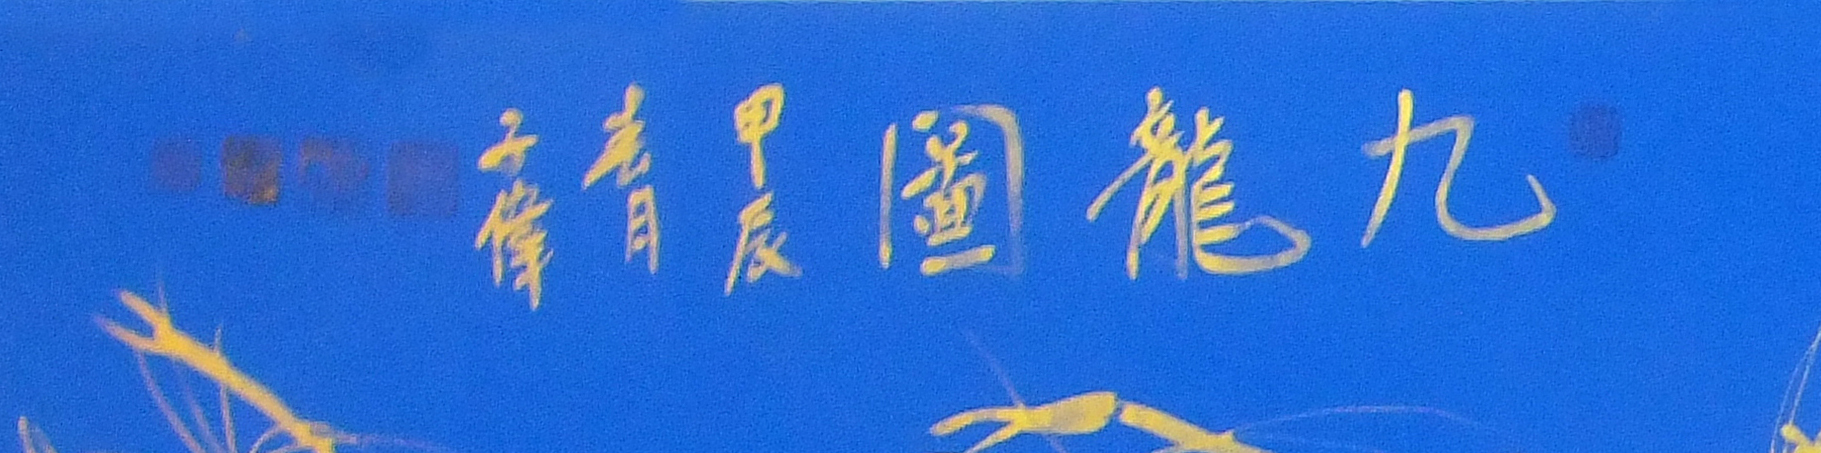 九龍圖
甲辰
春月
子偉